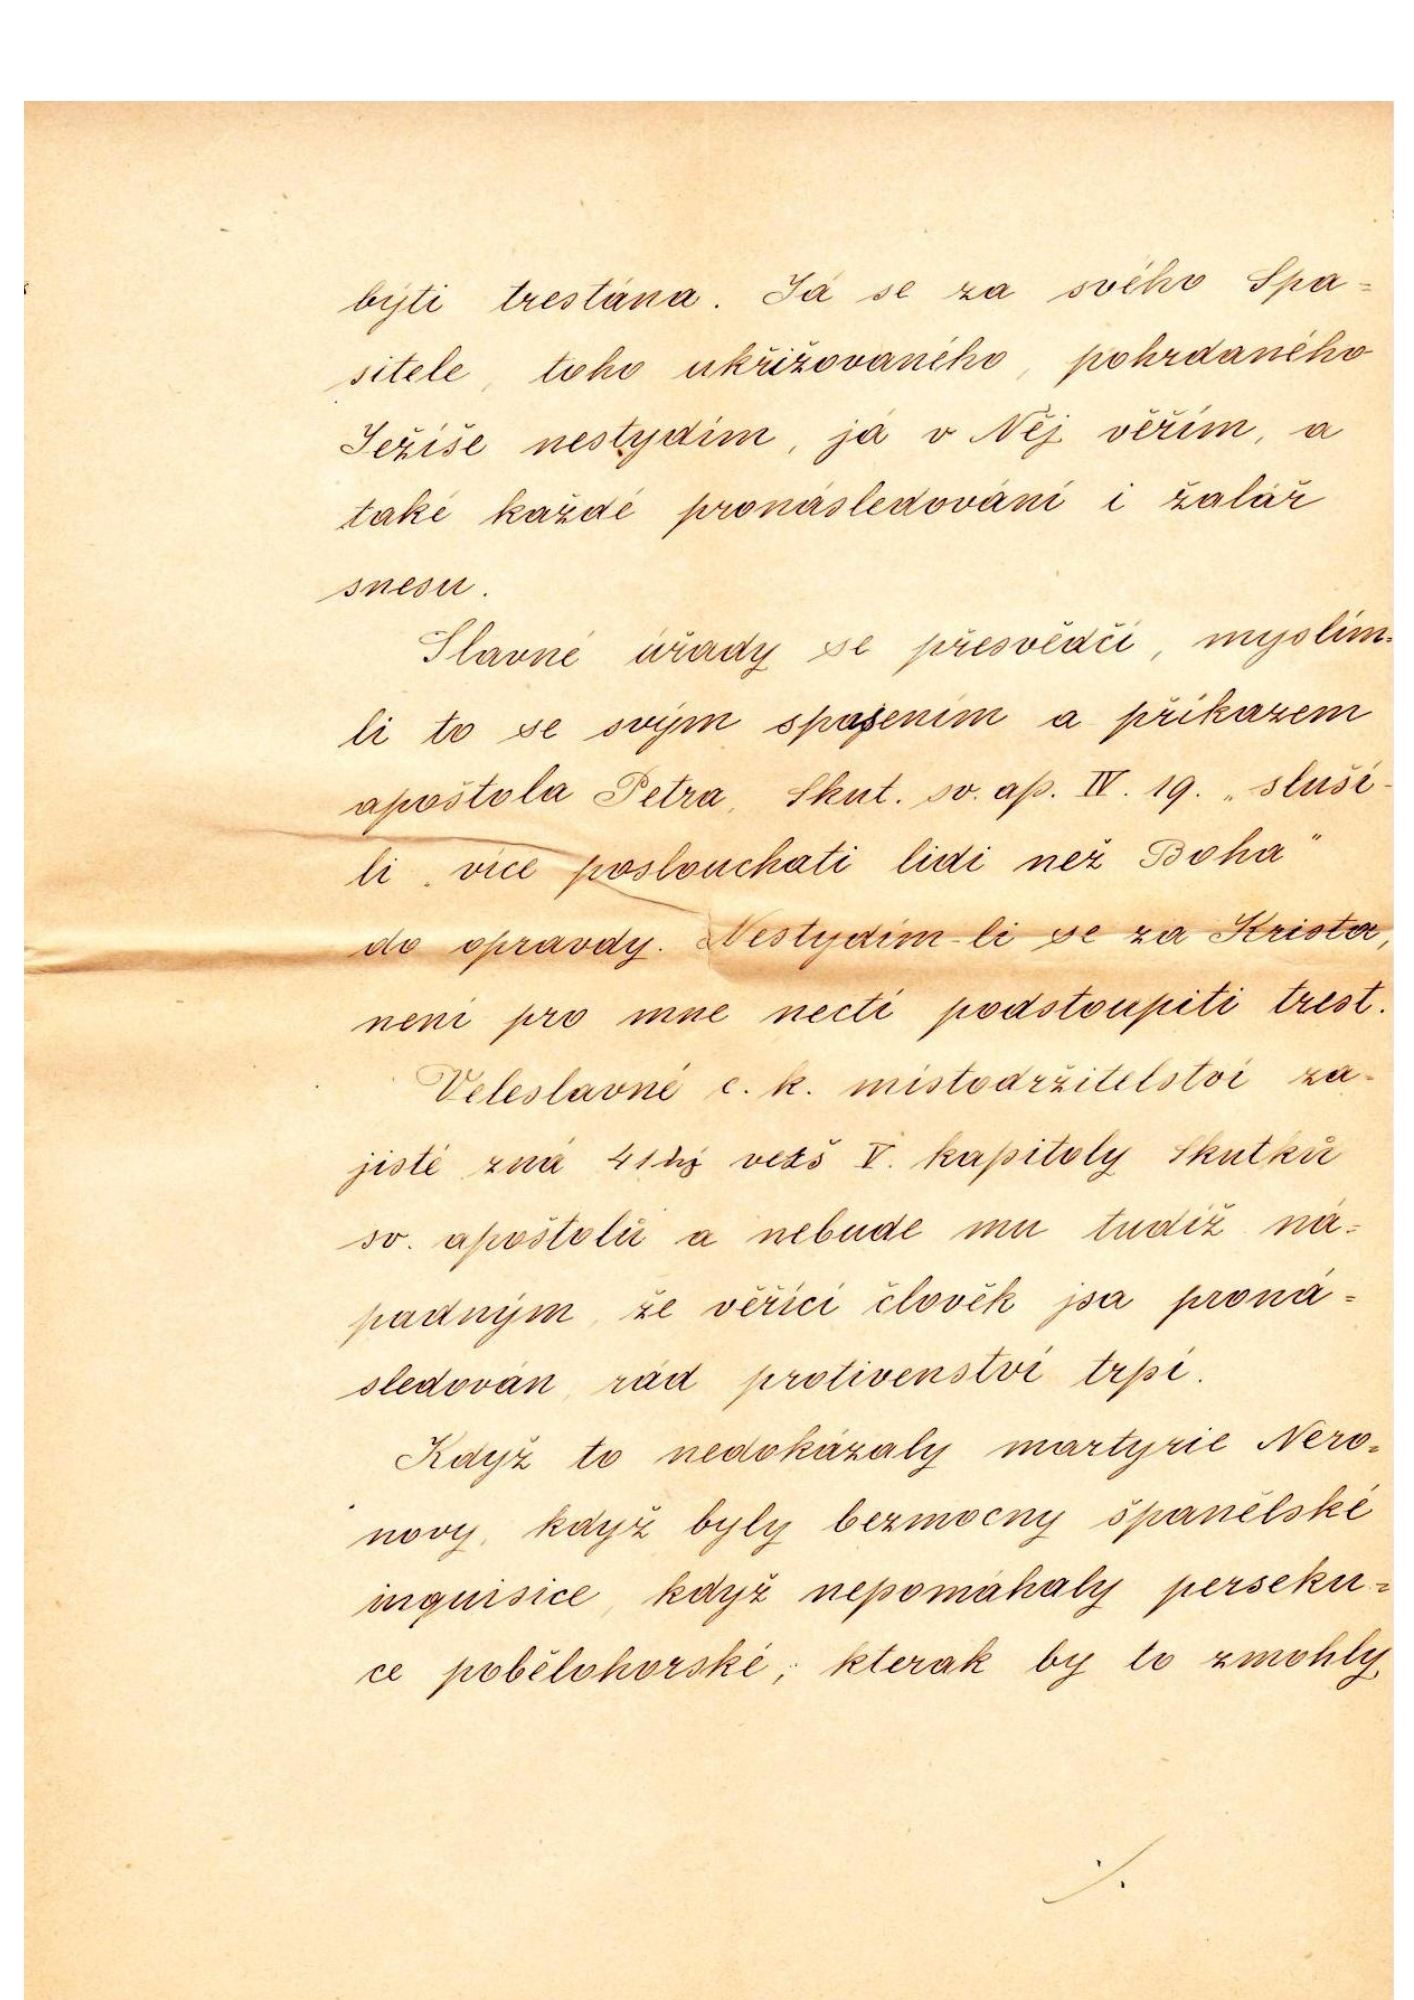 býti trestána. Já se za svého Spa=
sitele, toho ukřižovaného, pohrdaného
Ježíše nestydím, já v Něj věřím, a
také každé pronásledování i žalář
snesu.
Slavné úřady se přesvědčí, myslím-
li to se svým spasením a příkazem
apoštola Petra, Skut. sv. ap. IV. 19. „sluší-
li více poslouchati lidi než Boha"
do opravdy. Nestydím-li se za Krista,
není pro mne nectí podstoupiti trest.
Veleslavné c. k. místodržitelství za-
jisté zná 41hý verš V. kapitoly Skutků
sv. apoštolů a nebude mu tudíž ná=
padným, že věřící člověk jsa proná=
sledován, rád protivenství trpí.
Když to nedokázaly martyrie Nero=
novy, když byly bezmocny španělské
inquisice, když nepomáhaly perseku=
ce pobělohorské, kterak by to zmohly
./.